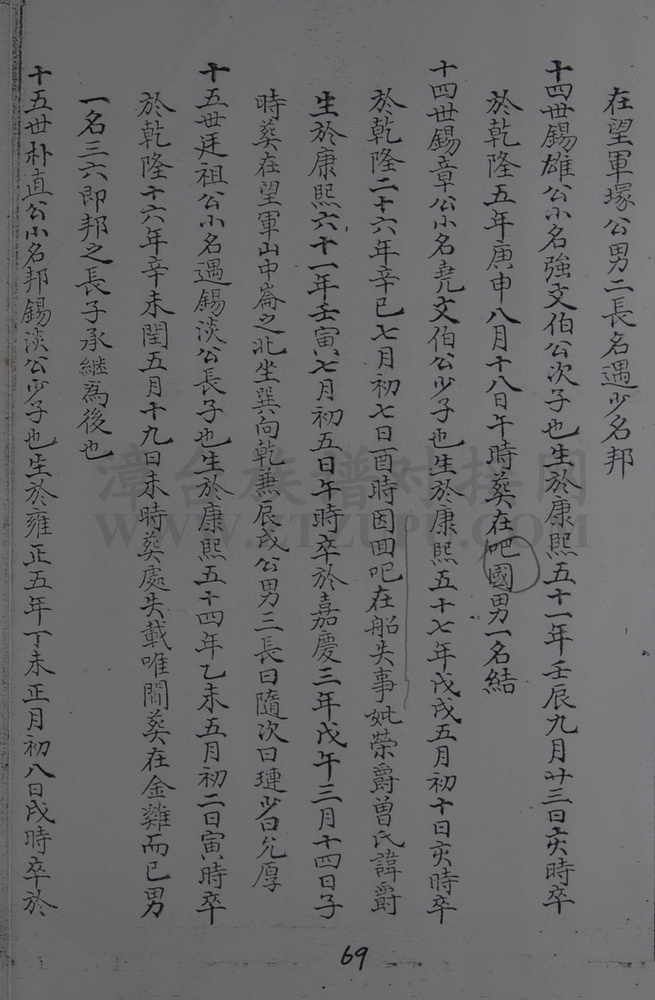 在望軍塚公男二長名遇少名邦
十四世錫雄公小名強文伯公次子也生於康熙五十一年壬辰九月廿三日亥時卒
於乾隆五年庚申八月十八日午時葬在吧國男一名結
十四世錫章公小名堯文伯公少子也生於康熙五十七年戊戌五月初十日亥時卒
於乾隆二十六年辛巳七月初七日酉時因回吧在船失事妣榮爵曾氏諱爵
生於康熙六十一年壬寅七月初五日午時卒於嘉慶三年戊午三月十四日子
時葬在望軍山中崙之北坐巽向乾兼辰戌公男三長曰隨次曰璉少曰允厚
十五世廷祖公小名遇錫淡公長子也生於康熙五十四年乙未五月初二日寅時卒
於乾隆十六年辛未閏五月十九日未時葬處失載唯聞葬在金雞而已男
一名三六即邦之長子承繼為後也
十五世朴直公小名邦錫淡公少子也生於雍正五年丁未正月初八日戌時卒於
69
漳台族谱对接网
WWW.ZTZUPU.COM